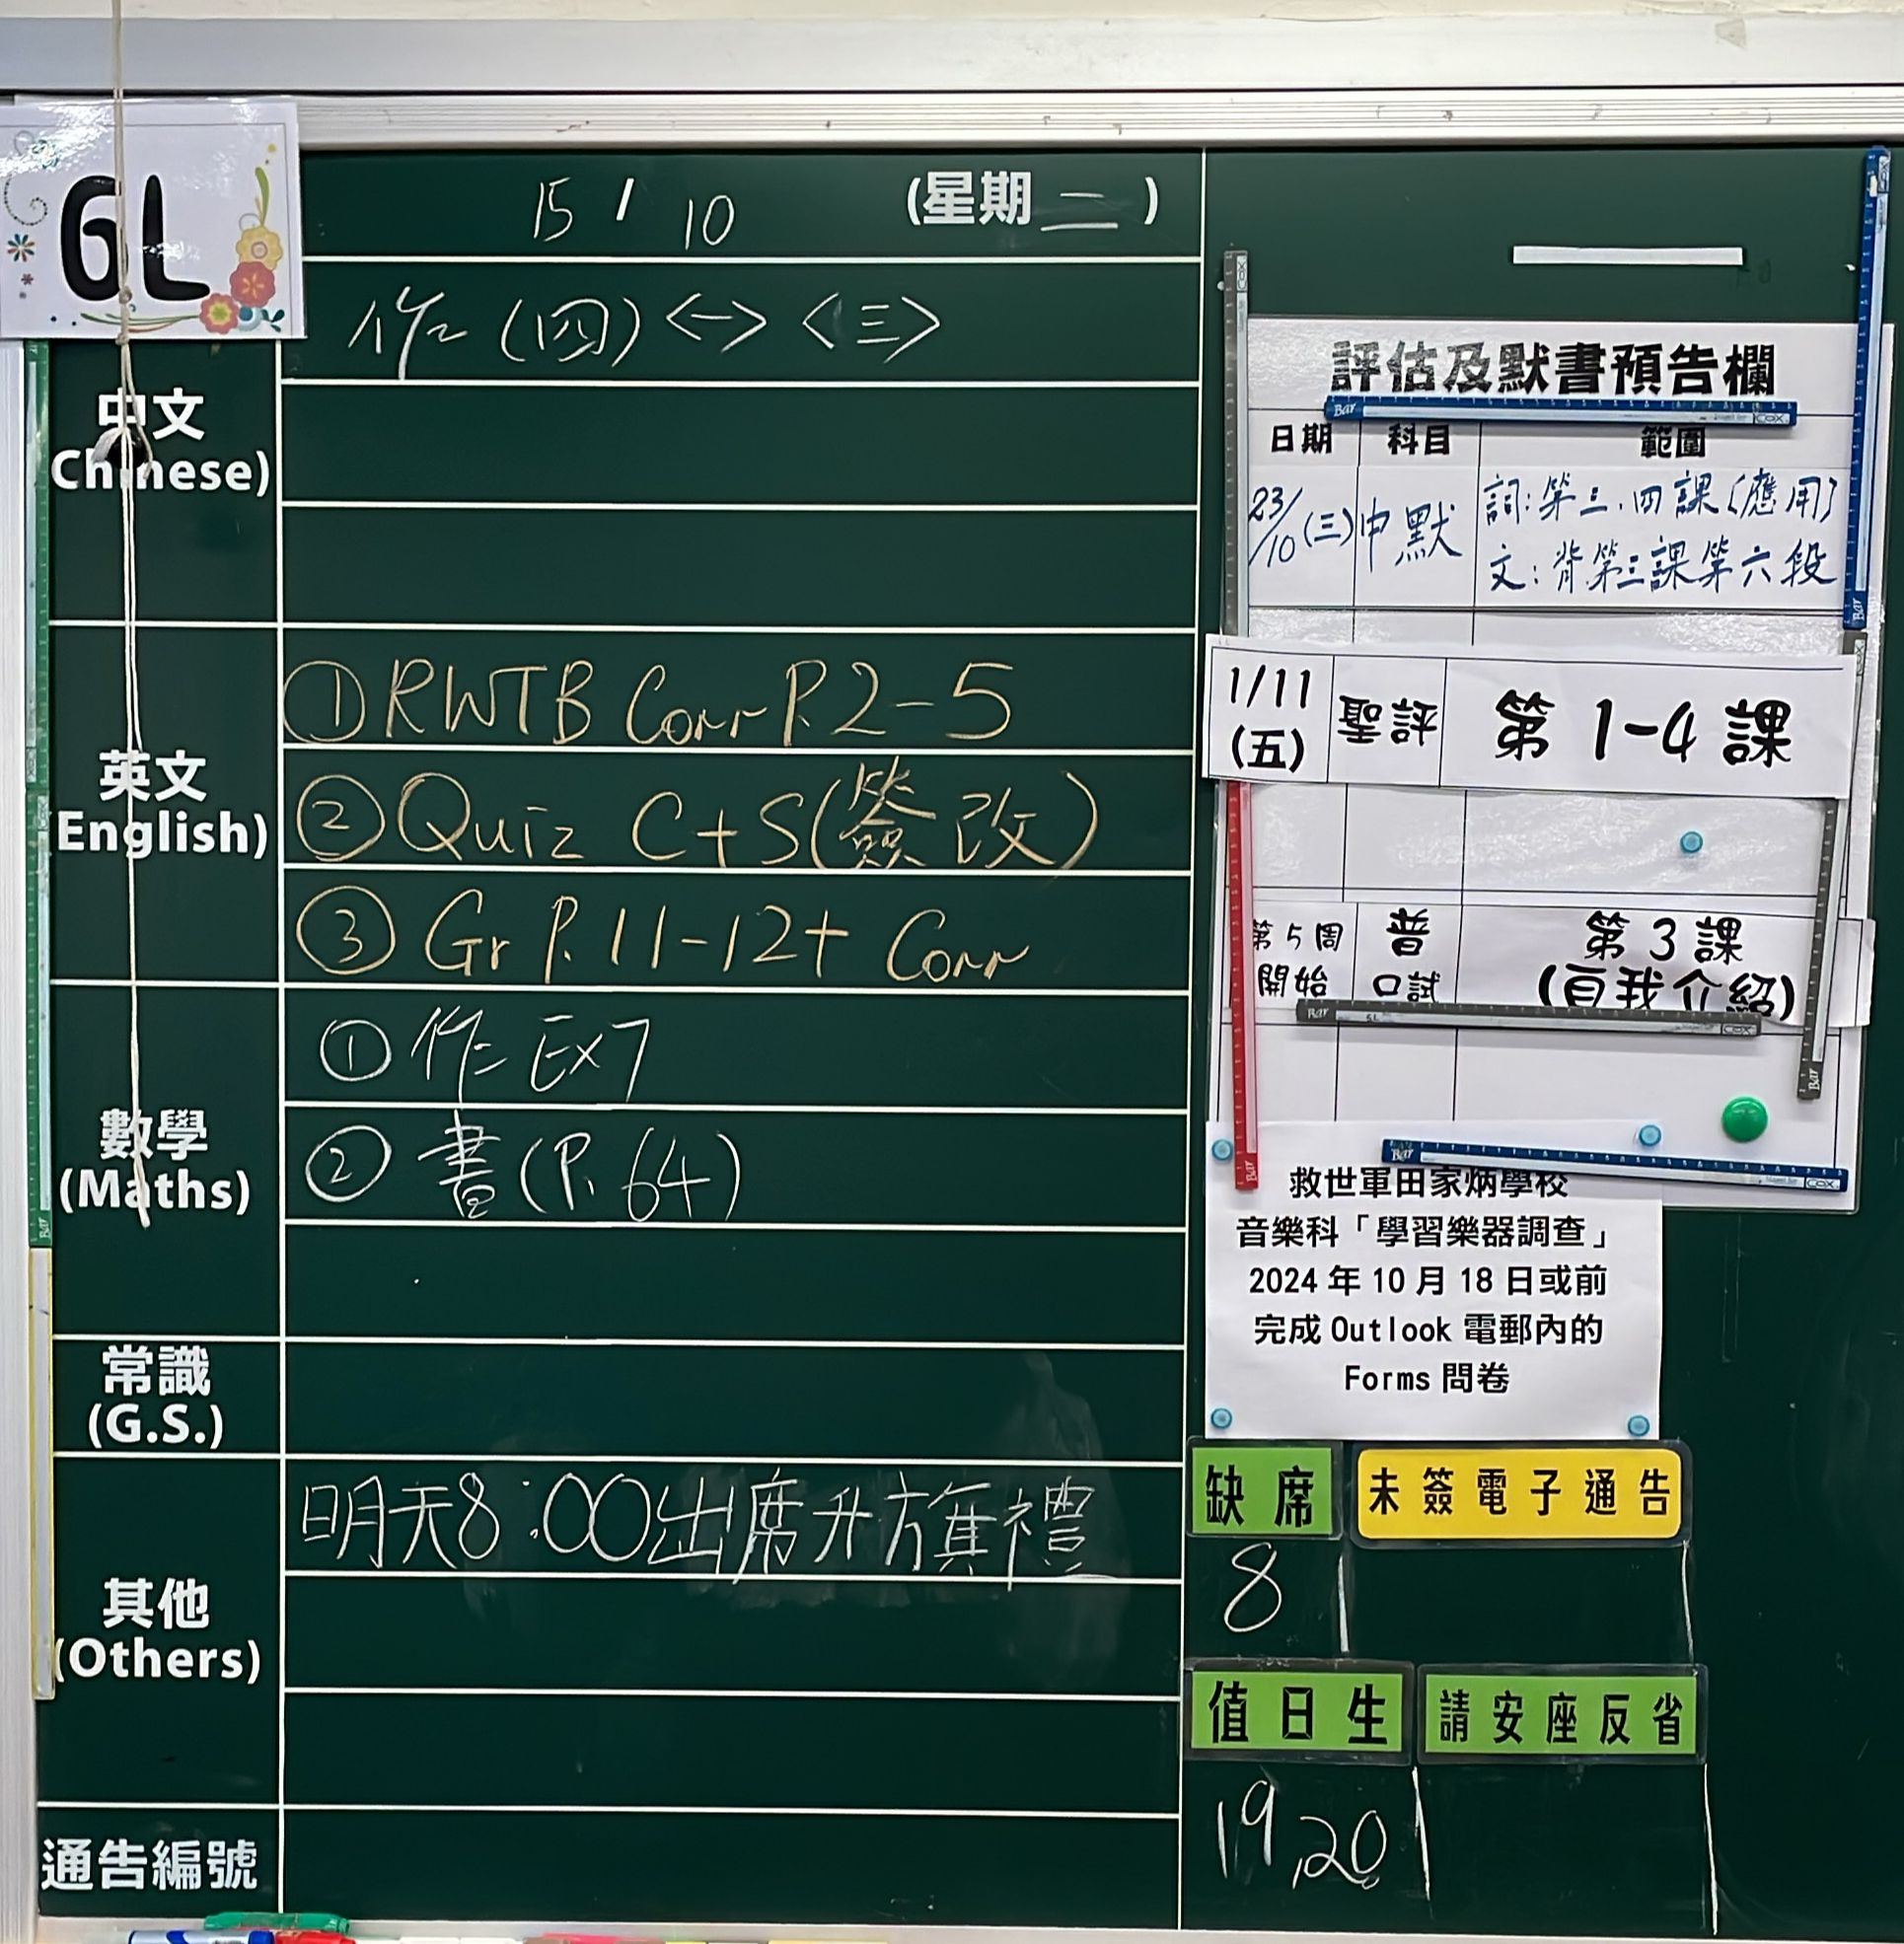 6L
15 / 10 (星期二)
作(四)<一> <三>
中文
(Chinese)
英文
(English)
①RWTB Corr P.2-5
②Quiz C+S(簽改)
③ Gr P.11-12+ Corr
數學
(Maths)
① 作 Ex7
② 書(P.64)
常識
(G.S.)
其他
(Others)
明天8:00出席升旗禮
通告編號
評估及默書預告欄
日期 科目 範圍
23/10 (三) 中默 詞:第三、四課(應用)
文:背第三課第六段
1/11
(五) 聖評 第 1-4 課
第5周
開始 普
口試 第3課
(自我介紹)
救世軍田家炳學校
音樂科「學習樂器調查」
2024 年 10 月 18 日或前
完成 Outlook 電郵內的
Forms 問卷
缺席 未簽電子通告
8
值日生 請安座反省
19,20